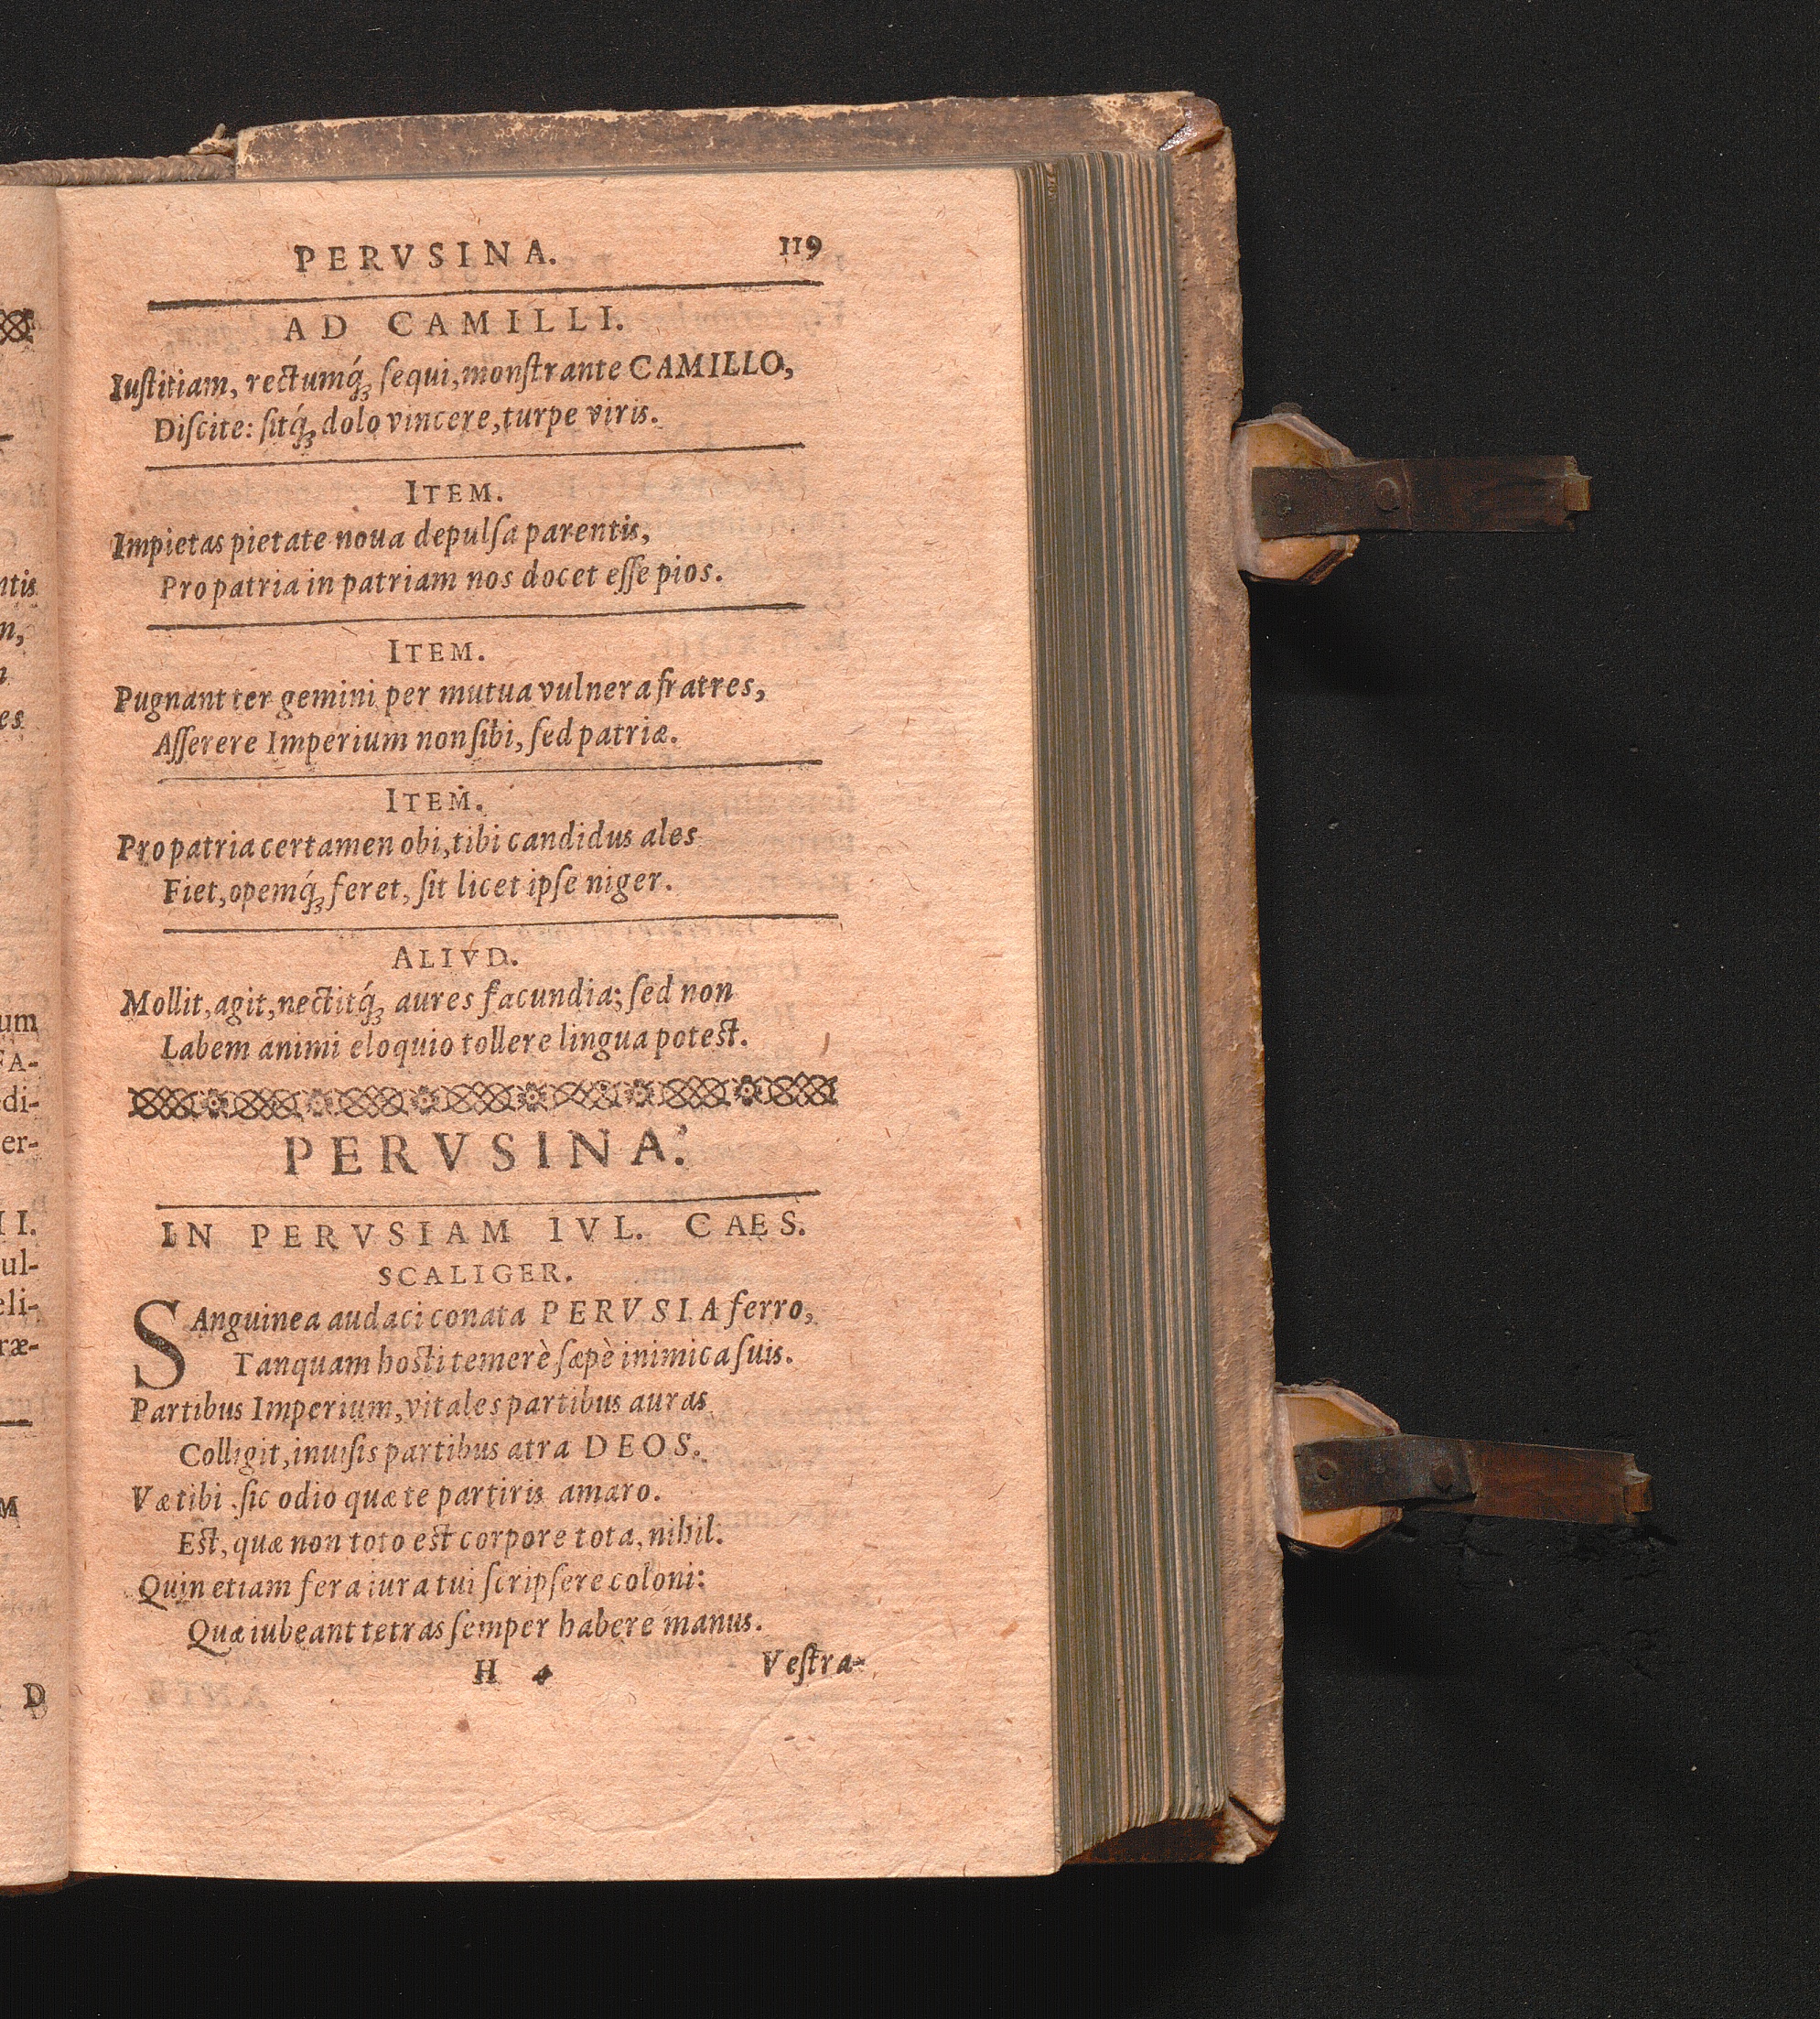 PERVSINA. 119
AD CAMILLI.
Iuſtitiam, rectumq́ꝫ ſequi, monſtrante CAMILLO,
Diſcite: ſitq́ꝫ dolo vincere, turpe viris.
ITEM.
Impietas pietate noua depulſa parentis,
Pro patria in patriam nos docet eſſe pios.
ITEM.
Pugnant ter gemini per mutua vulnera fratres,
Aſſerere Imperium non ſibi, ſed patriæ.
ITEM.
Pro patria certamen obi, tibi candidus ales
Fiet, opemq́ꝫ feret, ſit licet ipſe niger.
ALIVD.
Mollit, agit, nectitq́ꝫ aures facundia; ſed non
Labem animi eloquio tollere lingua poteſt.
PERVSINA.
IN PERVSIAM IVL. CAES.
SCALIGER.
SAnguinea audaci conata PERVSIA ferro,
Tanquam hoſti temerè ſæpè inimica ſuis.
Partibus Imperium, vitales partibus auras
Colligit, inuiſis partibus atra DEOS.
Væ tibi ſic odio quæ te partiris amaro.
Eſt, quæ non toto eſt corpore tota, nihil.
Quin etiam fera iura tui ſcripſere coloni:
Quæ iubeant tetras ſemper habere manus.
H 4 Veſtra-
ntis
n,
es
um
FA-
di-
er-
II.
ul-
eli-
ræ-
M
D